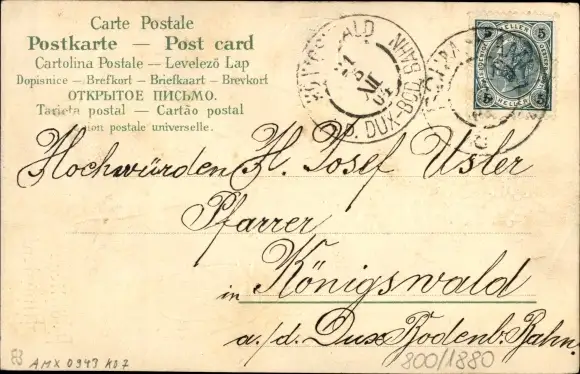 Carte Postale
Postkarte — Post card
Cartolina Postale — Levelező Lap
Dopisnice — Brefkort — Briefkaart — Brevkort
ОТКРЫТОЕ ПИСЬМО.
Tarjeta postal — Cartão postal
union postale universelle.
WALD
21
XII
04
DUX-BOD. BAHN
5 HELLER 5
5 HELLER 5
Hochwürden H. Josef
Pfarrer
in Königswald
a./d. Dux Bodenb. Bahn.
AMX 0943 K07
800/1880